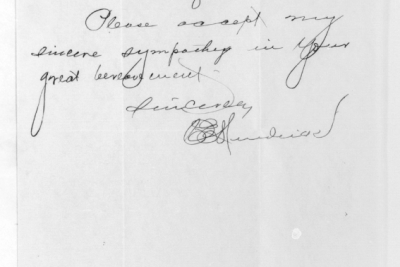 Please accept my
sincere sympathy in your
great bereavement.
Sincerely